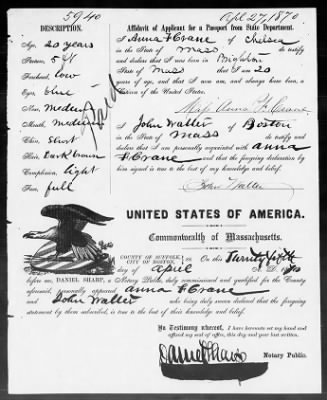 5940
Apl 27, 1870
DESCRIPTION.
Age, 20 years
Stature, 5 ft
Forehead, low
Eyes, blue
Nose, medium
Mouth, medium
Chin, short
Hair, dark brown
Complexion, light
Face, full
Affidavit of Applicant for a Passport from State Department.
I Anna F Crane of Chelsea
in the State of Mass do notify and
declare that I was born in Brighton
in the State of Mass that I am 20
years of age, and that I am, and always have been, a
Citizen of the United States.
Miss Anna F. Crane
I John Walter of Boston
in the State of Mass do notify and
declare that I am personally acquainted with Anna
F Crane and that the foregoing declaration by
him signed is true to the best of my knowledge and belief.
John Walter
UNITED STATES OF AMERICA.
Commonwealth of Massachusetts.
COUNTY OF SUFFOLK,
CITY OF BOSTON,
ss. On this Twenty sixth
day of April A. D. 1870
before me, DANIEL SHARP, a Notary Public, duly commissioned and qualified for the County
aforesaid, personally appeared Anna F Crane
and John Walter who being duly sworn declared that the foregoing
statement by them subscribed, is true to the best of their knowledge and belief.
In Testimony whereof, I have hereunto set my hand and
affixed my seal of office, this day and year last written.
Daniel Sharp
Notary Public.